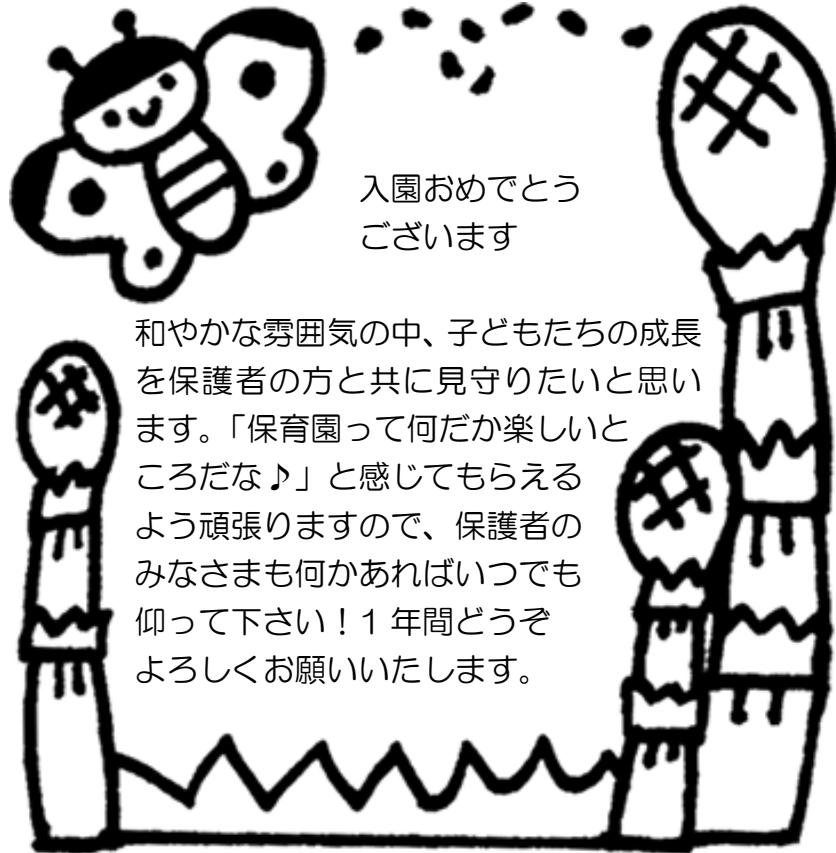 入園おめでとう
ございます
和やかな雰囲気の中、子どもたちの成長
を保護者の方と共に見守りたいと思い
ます。「保育園って何だか楽しいと
ころだな♪」と感じてもらえる
よう頑張りますので、保護者の
みなさまも何かあればいつでも
仰って下さい！1 年間どうぞ
よろしくお願いいたします。